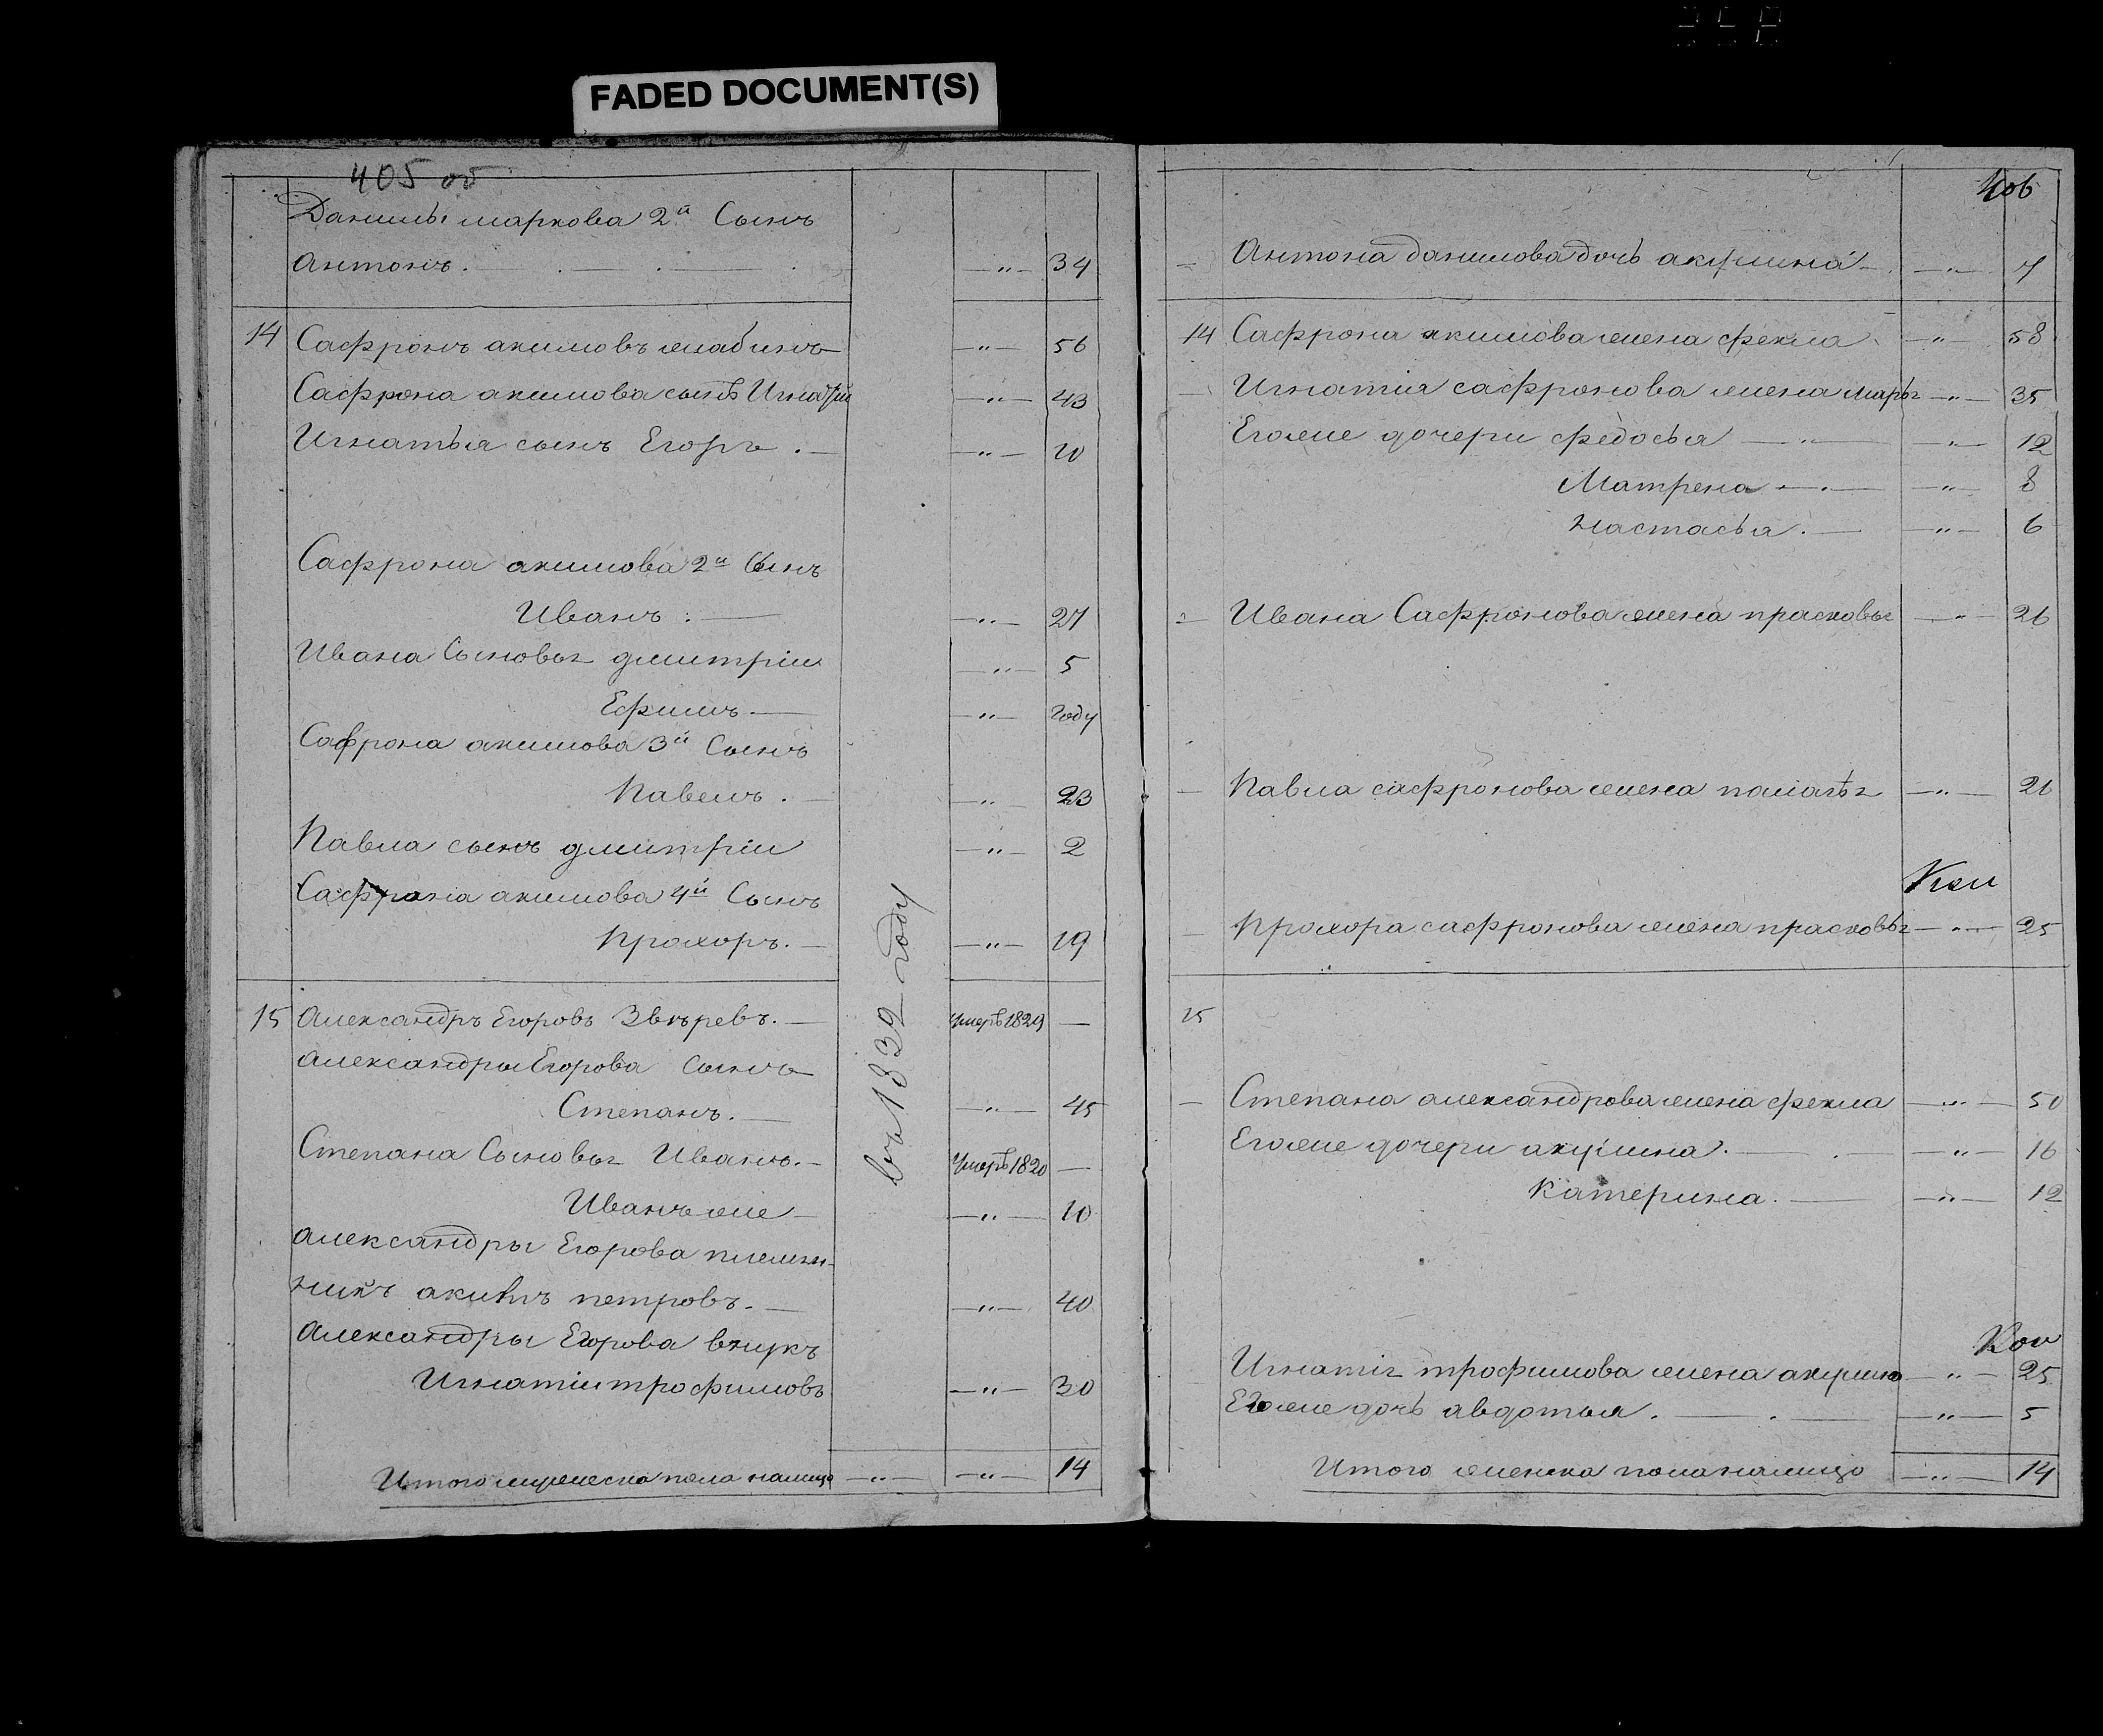 FADED DOCUMENT(S)
405 об
Данилы маркова 2й Сынъ
Антонъ. — " — 34
14 Сафронъ акимовъ жабинъ — " — 56
Сафрона акимова сынъ Игнатій — " — 43
Игнатья сынъ Егоръ. — " — 10
Сафрона акимова 2й Сынъ
Иванъ: — " — 27
Ивана Сыновья дмитріи — " — 5
Ефимъ — " — году
Сафрона акимова 3й Сынъ
Павелъ. — " — 23
Павла сынъ дмитріи — " — 2
Сафрона акимова 4й Сынъ
Прохоръ. — " — 19
15 Александръ Егоровъ Звѣревъ. — умеръ 1829 —
Александры Егорова сынъ
Степанъ. — " — 45
Степана Сыновья Иванъ. — умеръ 1820 —
Иванъ же — " — 10
Александры Егорова племян-
никъ акимъ петровъ. — " — 40
Александры Егорова внукъ
Игнатіи трофимовъ — " — 30
Итого мужеска пола налицо — " — " — 14
въ 1832 году
406
— Антона данилова дочь акулина — " — 7
14 Сафрона акимова жена фекла — " — 58
— Игнатія сафронова жена марья — " — 35
Егоже дочери федосья — " — 12
Матрена — " — 8
настасья. — " — 6
— Ивана Сафронова жена прасковья — " — 26
— Павла сафронова жена палагѣя — " — 26
— Прохора сафронова жена прасковья — " — 25
15
— Степана александрова жена фекла — " — 50
Егоже дочери акулина. — " — 16
Катерина. — " — 12
Игнатія трофимова жена акулина — " — 25
Егоже дочь авдотья. — " — 5
Итого женска пола налицо — " — 14